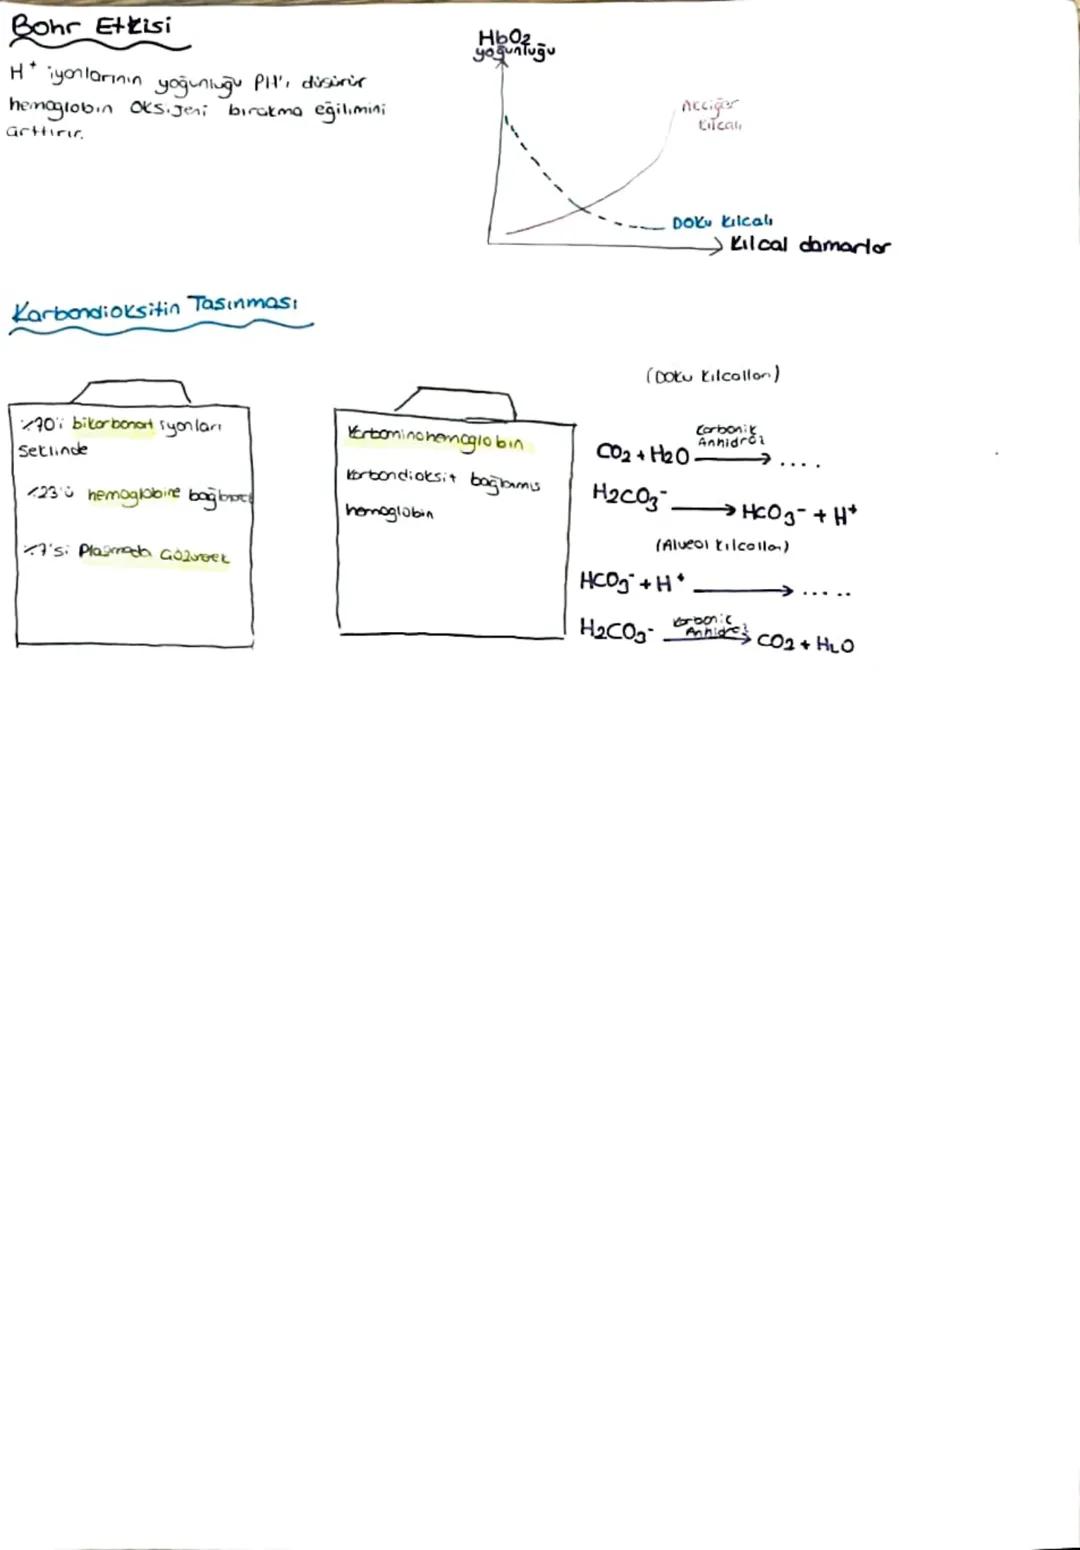 Bohr Etkisi
H⁺ iyonlarının yoğunluğu PH'ı düşürür
hemoglobin oksijeni bırakma eğilimini
arttırır.
HbO2
yoğunluğu
Akciğer
kılcalı
Doku kılcalı
Kılcal damarlar
Karbondioksitin Tasınması
%70'i bikarbonat iyonları
seklinde
%23'ü hemoglobine bağlanarak
%7'si Plazmada Çözünerek
Karbominohemoglobin
karbondioksit bağlanmıs
hemoglobin
(Doku kılcalları)
CO2 + H2O Karbonik Anhidraz → ....
H2CO3⁻ → HCO3⁻ + H⁺
(Alveol kılcalları)
HCO3⁻ + H⁺ → .....
H2CO3⁻ karbonik Anhidraz → CO2 + H2O